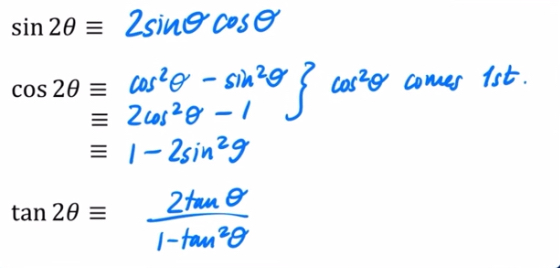 sin 2θ ≡ 2sinθ cosθ
cos 2θ ≡ cos²θ − sin²θ } cos²θ comes 1st.
≡ 2cos²θ − 1
≡ 1 − 2sin²θ
tan 2θ ≡ 2tan θ / 1−tan²θ